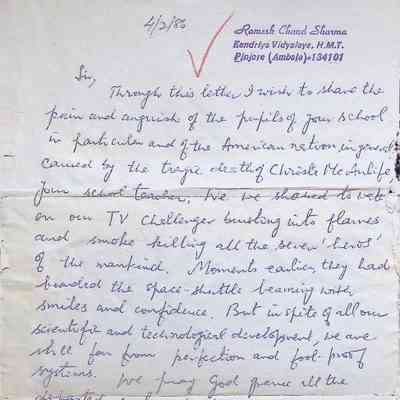 4/2/86
Ramesh Chand Sharma
Kendriya Vidyalaya, H.M.T.
Pinjore (Ambala)-134101
Sir,
Through this letter I wish to share the
pain and anguish of the pupils of your school
in particular and of the American nation in general
caused by the tragic death of Christa McAuliffe
your school teacher. We
on our TV Challenger bursting into flames
and smoke killing all the seven 'heros'
of the mankind. Moments earlier, they had
boarded the space-shuttle beaming with
smiles and confidence. But in spite of all our
scientific and technological development, we are
still far from perfection and fool-proof
systems. We pray God peace all the
departed